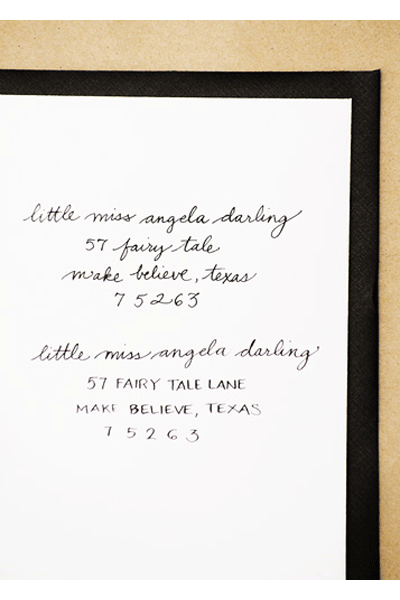 little miss angela darling
57 fairy tale
make believe, texas
75263
little miss angela darling
57 FAIRY TALE LANE
MAKE BELIEVE, TEXAS
75263